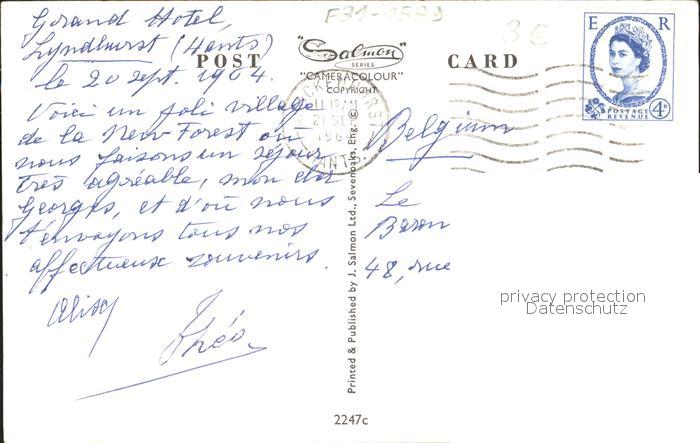 Grand Hotel,
Lyndhurst (Hants)
le 20 sept. 1964.
Voici un joli village
de la New Forest où
nous faisons un séjour
très agréable, mon cher
Georges, et d'où nous
t'envoyons tous nos
affectueux souvenirs.
Théo
F31-1589
3€
POST CARD
"Salmon
SERIES
"CAMERACOLOUR"
COPYRIGHT
E R
4D
POSTAGE
REVENUE
11 15 AM
21 SE
196
HANTS
Belgium
Le
Baron
48, rue
privacy protection
Datenschutz
Printed & Published by J. Salmon Ltd., Sevenoaks, Eng. ©
2247c